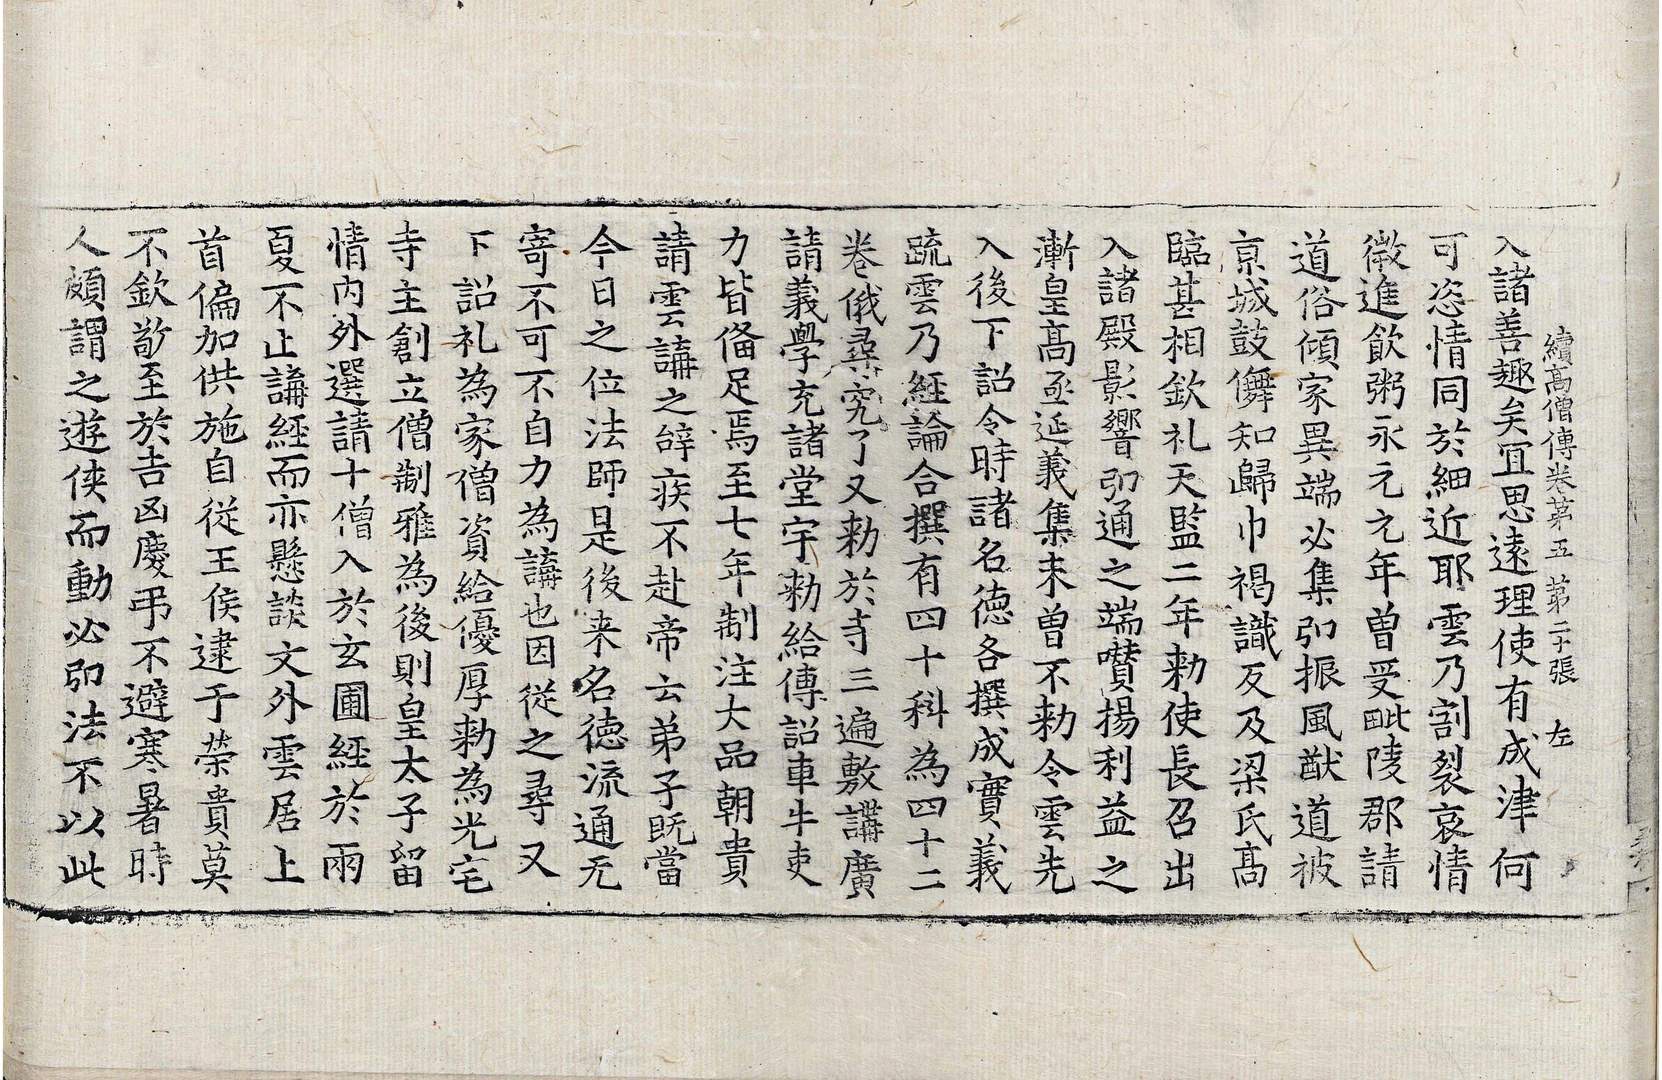 續高僧傳卷第五 第二十張 左
入諸善趣矣宜思遠理使有成津何
可恣情同於細近耶雲乃割裂哀情
微進飲粥永元元年曾受毗陵郡請
道俗傾家異端必集卽振風猷道被
京城鼓儛知歸巾褐識反及梁氏高
臨甚相欽礼天監二年勑使長召出
入諸殿影響弘通之端囋揚利益之
漸皇高亟延義集未曾不勑令雲先
入後下詔令時諸名德各撰成實義
疏雲乃經論合撰有四十科為四十二
卷俄尋究了又勑於寺三遍敷講廣
請義學充諸堂宇勑給傳詔車牛吏
力皆俻足焉至七年制注大品朝貴
請雲講之辞疾不赴帝云弟子既當
今日之位法師是後来名德流通无
寄不可不自力為講也因従之尋又
下詔礼為家僧資給優厚勑為光宅
寺主創立僧制雅為後則皇太子留
情內外選請十僧入於玄圃經於兩
夏不止講經而亦懸談文外雲居上
首偏加供施自從王侯逮于榮貴莫
不欽敬至於吉凶慶弔不避寒暑時
人頗謂之遊俠而動必卽法不以此